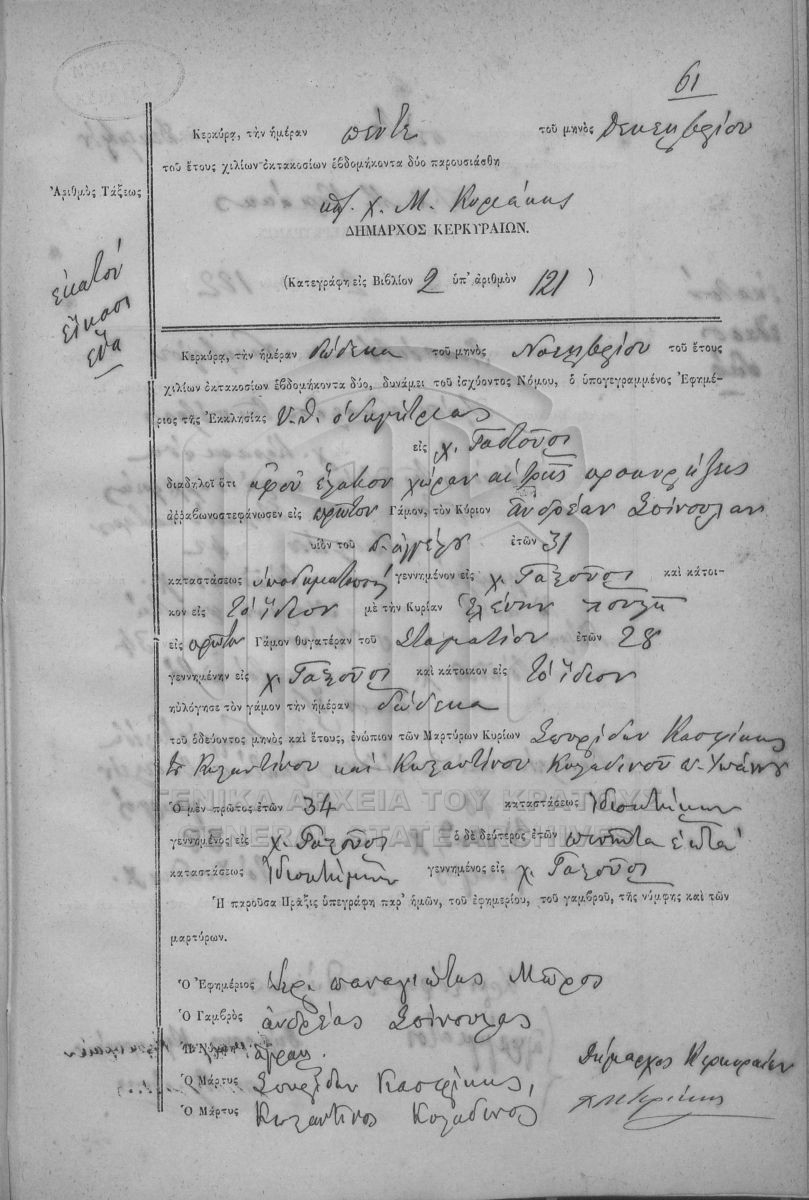 61
Κερκύρᾳ, τὴν ἡμέραν πέντε τοῦ μηνὸς Δεκεμβρίου
τοῦ ἔτους χιλίων ὀκτακοσίων ἑβδομήκοντα δύο παρουσιάσθη
Μ.
ΔΗΜΑΡΧΟΣ ΚΕΡΚΥΡΑΙΩΝ.
Ἀριθμὸς Τάξεως
ἑκατόν
εἴκοσι
ἕνα
(Κατεγράφη εἰς Βιβλίον 2 ὑπ' ἀριθμὸν 121 )
Κερκύρᾳ, τὴν ἡμέραν δώδεκα τοῦ μηνὸς Νοεμβρίου τοῦ ἔτους
χιλίων ὀκτακοσίων ἑβδομήκοντα δύο, δυνάμει τοῦ ἰσχύοντος Νόμου, ὁ ὑπογεγραμμένος Ἐφημέ-
ριος τῆς Ἐκκλησίας Υ.Θ. ὁδηγήτριας
εἰς χ. Γαστοῦρι
διαδηλοῖ ὅτι ἀφοῦ ἔλαβον χώραν αἱ τρεῖς προκηρύξεις
ἀρραβωνοστεφάνωσεν εἰς πρῶτον Γάμον, τὸν Κύριον ἀνδρέαν Σπίνουλαν
υἱὸν τοῦ ἐτῶν 31
καταστάσεως ὑποδηματοποιὸς γεννημένον εἰς χ. Γαστοῦρι καὶ κάτοι-
κον εἰς τὸ ἴδιον μὲ τὴν Κυρίαν Ἑλένην
εἰς πρῶτον Γάμον θυγατέραν τοῦ Σταματίου ἐτῶν 28
γεννημένην εἰς χ. Γαστοῦρι καὶ κάτοικον εἰς τὸ ἴδιον
ηὐλόγησε τὸν γάμον τὴν ἡμέραν δώδεκα
τοῦ ὁδεύοντος μηνὸς καὶ ἔτους, ἐνώπιον τῶν Μαρτύρων Κυρίων Σπυρίδων Κασφίκης
Κωσταντίνου καὶ Κωσταντίνου Κολαδινοῦ
Ὁ μὲν πρῶτος ἐτῶν 34 καταστάσεως ἰδιοκτήμων
γεννημένος εἰς χ. Γαστοῦρι ὁ δὲ δεύτερος ἐτῶν πενῆντα ἑπτά
καταστάσεως ἰδιοκτήμων γεννημένος εἰς χ. Γαστοῦρι
Ἡ παροῦσα Πρᾶξις ὑπεγράφη παρ' ἡμῶν, τοῦ ἐφημερίου, τοῦ γαμβροῦ, τῆς νύμφης καὶ τῶν
μαρτύρων.
Ὁ Ἐφημέριος Ἱερ. Παναγιώτης Μπῦρος
Ὁ Γαμβρὸς ἀνδρέας Σπίνουλας
Ἡ Νύμφη
Δήμαρχος Κερκυραίων
Ὁ Μάρτυς Σπυρίδων Κασφίκης,
Ὁ Μάρτυς Κωσταντίνος Κολαδινος
ΓΕΝΙΚΑ ΑΡΧΕΙΑ ΤΟΥ ΚΡΑΤΟΥΣ
GENERAL STATE ARCHIVES